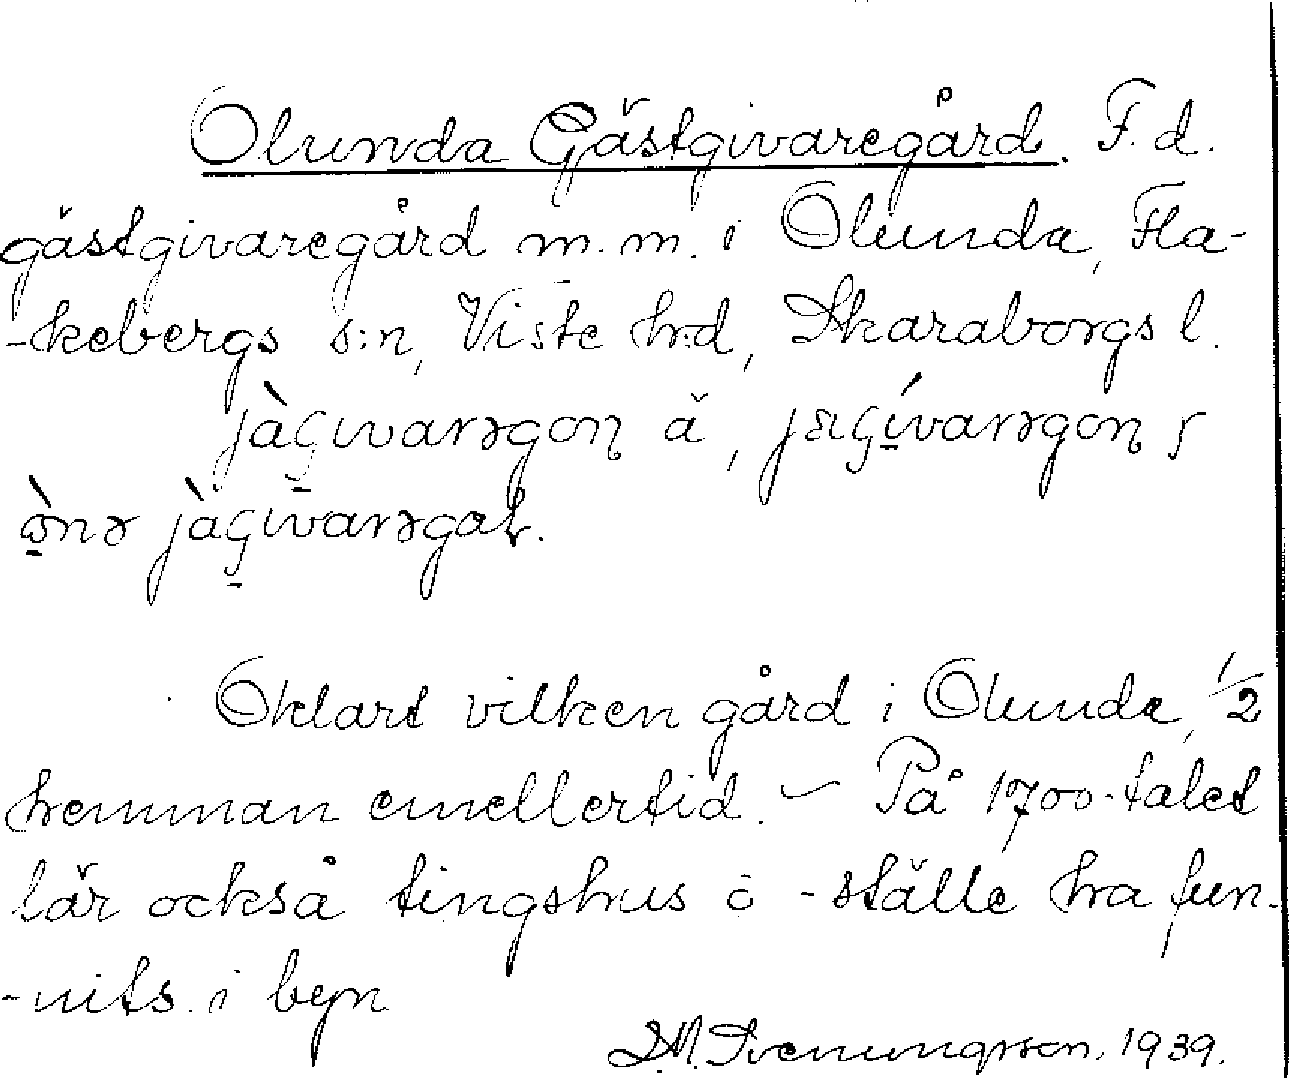 Olunda Gästgivaregård. F.d.
gästgivaregård m.m. i Olunda, Fla-
-kebergs s:n, Viste h:d, Skaraborgs l.
Oklart vilken gård i Olunda, 1/2
hemman emellertid. – På 1700-talet
lär också tingshus o -ställe ha fun-
-nits i byn
Svenungsson, 1939.